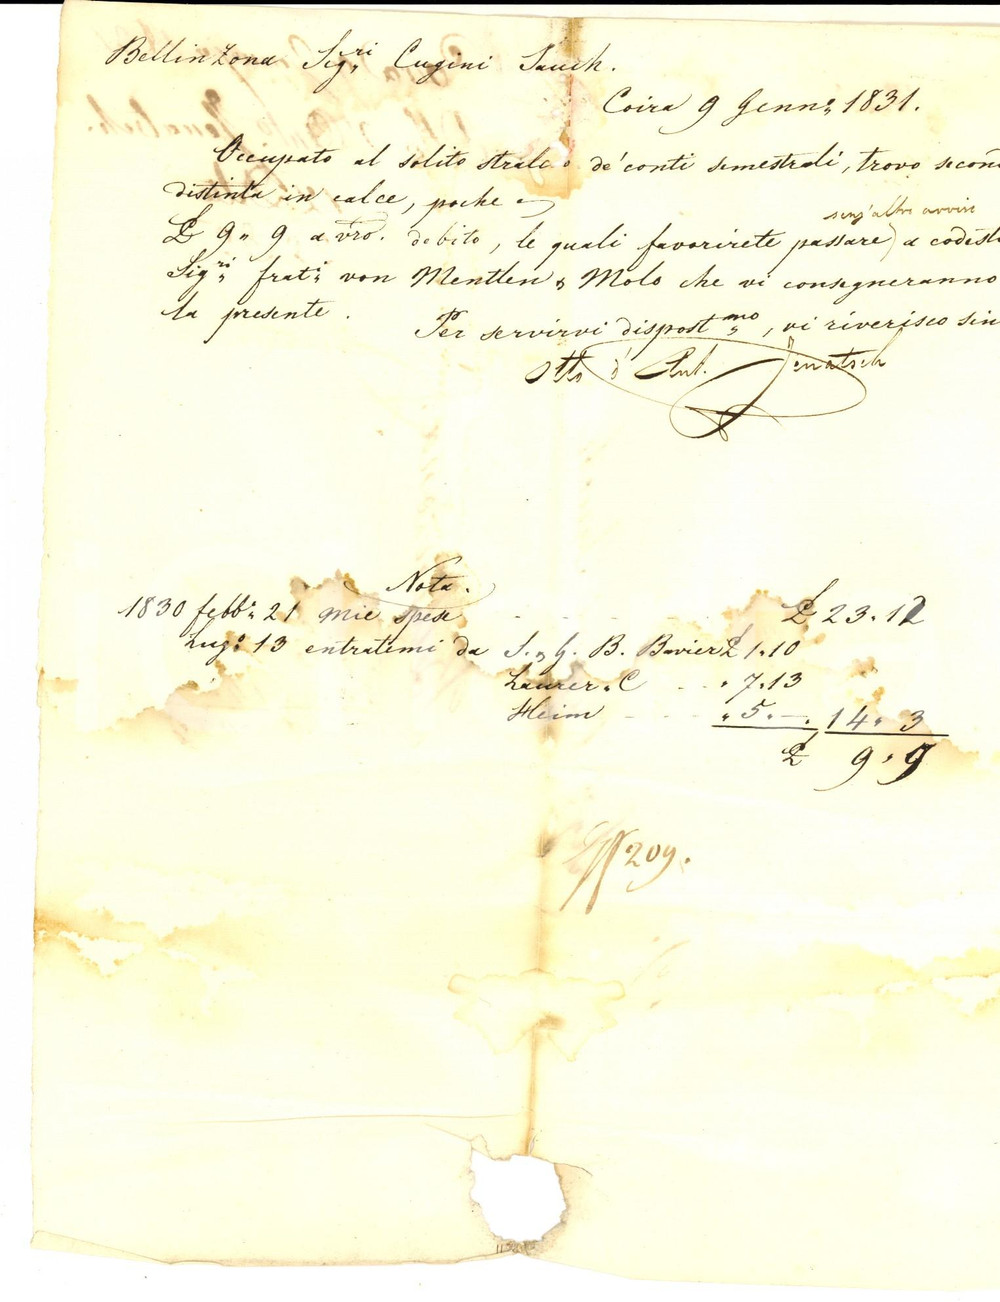 Bellinzona Sigri Cugini Sauch.
Coira 9 Genn: 1831.
Occupato al solito stralcio de' conti semestrali, trovo secon
distinta in calce, poche
senz'altro avviso
£ 9„ 9 a vro. debito, le quali favorirete passare a codesti
Sigri frati von Mentlen & Molo che vi consegneranno
la presente.
Per servirvi dispostmo, vi riverisco sin
Otto d' Ant. Jenatsch
Nota.
1830 febb: 21 mie spese £ 23.12
Lugo 13 entratimi da S. & G. B. Bavier £ 1.10
Laurer. C „ 7.13
Heim „ 5.—. 14„ 3
£ 9„ 9
209.